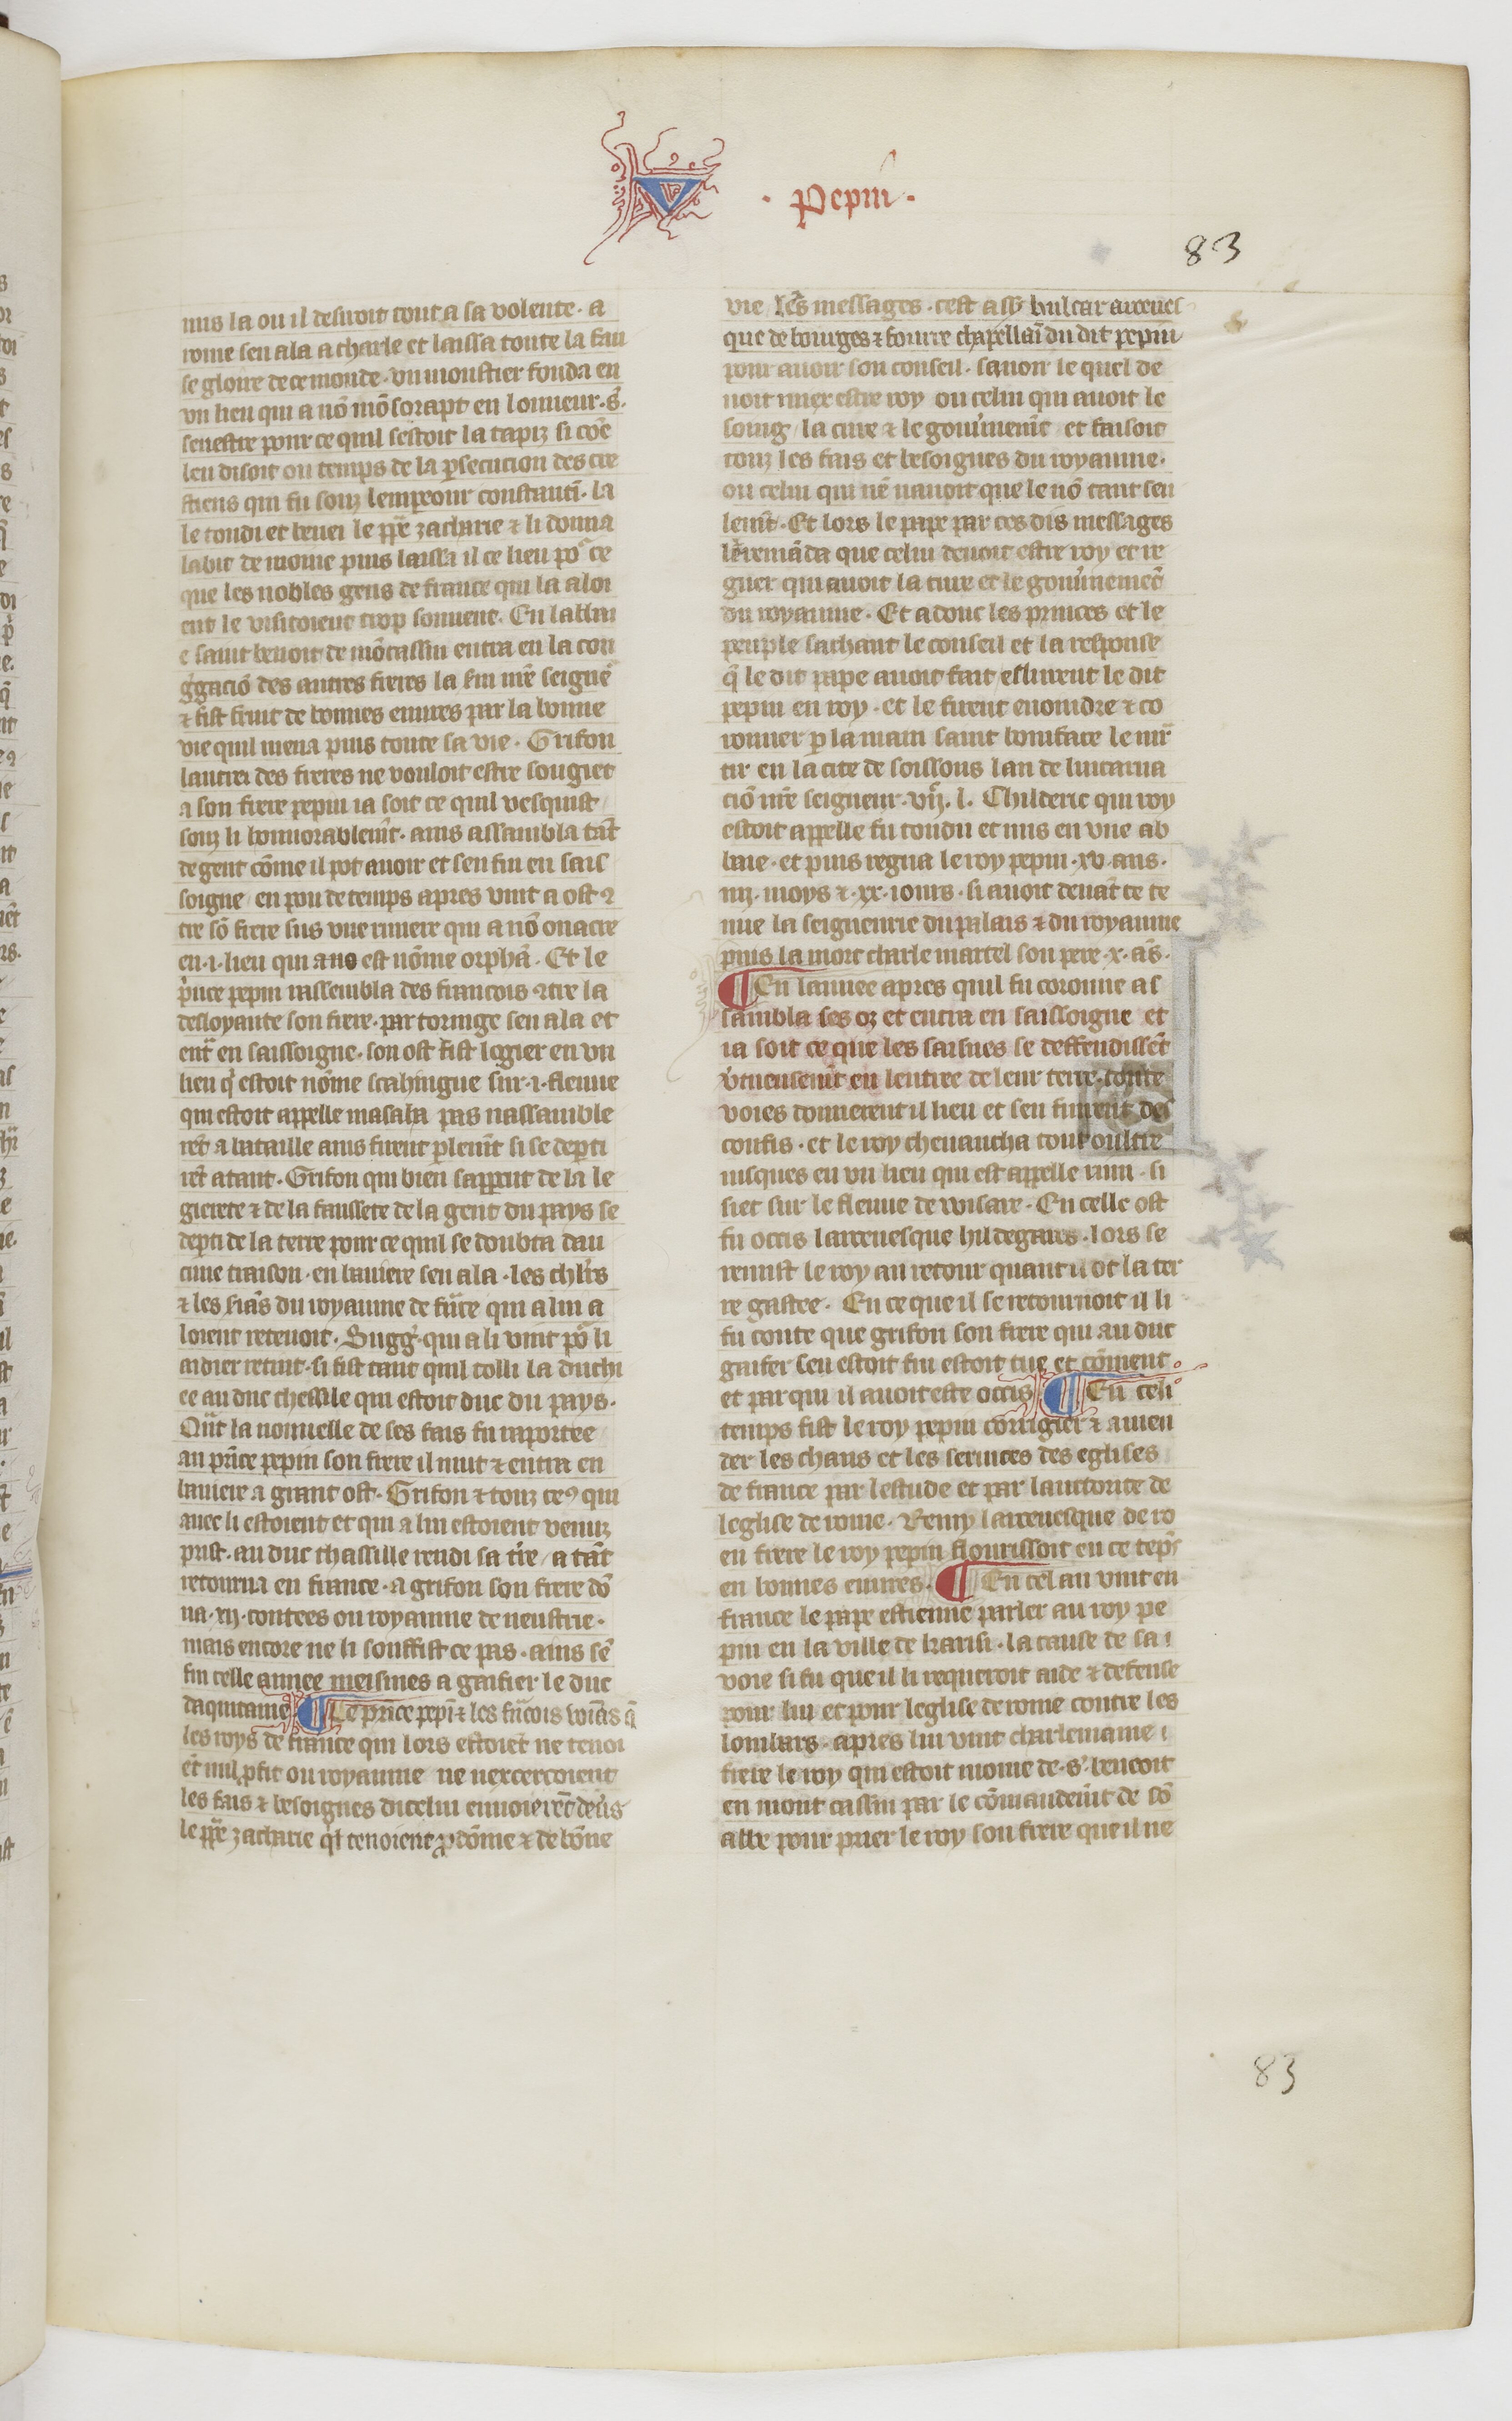 V · Pepin ·
83
mis la ou il desiroit tout a sa volente · a
rome sen ala a charle et laissa toute la fau
se gloire de ce monde · vn moustier fonda en
vn lieu qui a nõ mõ sorapt en lonneur · s̃ ·
seuestre pour ce quil sestoit la tapiz si cõe
len disoit ou temps de la ꝑsecucion des cre
stiens qui fu souz lempeour constantĩ · la
le tondi et benei le pp̃e zacharie ⁊ li donna
labit de moine puis laissa il ce lieu po᷑ ce
que les nobles gens de france qui la aloi
ent le visitoient trop souuent · En labbai
e saint benoit de mõcassin entra en la con
g̃gaciõ des autres freres la serui nr̃e seigne᷑
⁊ fist fruit de bonnes euures par la bonne
vie quil mena puis toute sa vie · Grifon
lautre des freres ne vouloit estre sougiet
a son frere pepin ia soit ce quil vesquist
souz li honnorablem̃t · ains assambla tãt
de gent cõme il pot auoir et sen fui en sais
soigne en pou de temps apres vint a ost ꝯ
tre sõ frere sus vne riuiere qui a nõ onacre
en · i · lieu qui a no est nõme orphã · Et le
p̃nce pepin rassembla des francois ꝯtre la
desloyaute son frere · par toringe sen ala et
ent̃ en saissoigne · son ost fist logier en vn
lieu q̃ estoit nõme scahnigue sur · i · fleuue
qui estoit appelle masaha pas nassamble
rẽt a bataille ains furent ꝑlem̃t si se deꝑti
rẽt atant · Grifon qui bien sapparut de la le
gierete ⁊ de la faussete de la gent du pays se
deꝑti de la terre pour ce quil se doubta dau
cune traison · en bauiere sen ala · les chl̃rs
⁊ les frãs du royaume de frãce qui a lui a
loient retenoit · Sugg̃ · qui a li vint po᷑ li
aidier retint · si fist tant quil tolli la duchi
ee au duc thessile qui estoit duc du pays ·
Qñt la nouuelle de ses fais fu raportee
au prĩce pepin son frere il mut ⁊ entra en
bauiere a grant ost · Grifon ⁊ touz ceꝰ qui
auec li estoient et qui a lui estoient venuz
prist · au duc thassille rendi sa tr̃e / a tãt
retourna en france · a grifon son frere dõ
na · xij · contees ou royaume de neustrie ·
mais encore ne li souffist ce pas · ains sẽ
fui celle annee meismes a gaifier le duc
daquitaine ¶ Le prĩce pepĩ ⁊ les frãcois voiãs q̃
les roys de france qui lors estoiẽt ne tenoi
ẽt nul ꝓfit ou royaume ne nexercoient
les fais ⁊ besoignes dicelui enuoierẽt deũs
le pp̃e zacharie ql̃ tenoient ꝓdõme ⁊ de bõne
vie leˢ messages · cest assz̃ bulcar arceues
que de bourges ⁊ fourre chapellaĩ du dit pepin
pour auoir son conseil · sauoir le quel de
uoit miex estre roy ou celui qui auoit le
soing / la cure ⁊ le gouũnem̃t et faisoit
touz les fais et besoignes du royaume ·
ou celui qui nẽ nauoit que le nõ tant seu
lem̃t · Et lors le pape par ces dis messages
le᷑ remãda que celui deuoit estre roy et re
gner qui auoit la cure et le gouũnemẽt
du royaume · Et adonc les princes et le
peuple sachant le conseil et la response
q̃ le dit pape auoit fait eslurent le dit
pepin en roy · et le firent enoindre ⁊ co
ronner ꝑ la main saint boniface le mr̃
tir en la cite de soissons lan de lincarna
ciõ nr̃e seigneur · vijͨ · l · Childeric qui roy
estoit appelle fu tondu et mis en vne ab
baie · et puis regna le roy pepin · xv · ans ·
iiij · moys ⁊ · xx · iours · si auoit deuãt ce te
nue la seigneurie du palais ⁊ du royaume
puis la mort charle martel son pere · x · ãs ·
¶ En lannee apres quil fu coronne as
sambla ses oz et entra en saissoigne et
ia soit ce que les saisnes se deffendissẽt
ṽtueusem̃t en lentree de leur terre · toute
voies donnerent il lieu et sen fuirent des
confis · et le roy cheuaucha tout oultre
iusques en vn lieu qui est appelle rimi · si
siet sur le fleuue de wisare · En celle ost
fu occis larceuesque hildegares · lors se
remist le roy au retour quant il ot la ter
re gastee · En ce que il se retournoit il li
fu conte que grifon son frere qui au duc
gaifer sen estoit fui estoit tue et cõment
et par qui il auoit este occis ¶ En celi
temps fist le roy pepin corrigier ⁊ amen
der les chans et les seruices des eglises
de france par lestude et par lauctorite de
leglise de rome · Remy larceuesque de ro
en frere le roy pepin flourissoit en ce tẽps
en bonnes euures · ¶ En cel an vint en
france le pape estienne parler au roy pe
pin en la ville de karisi · la cause de sa
voie si fu que il li requeroit aide ⁊ defense
pour lui et pour leglise de rome contre les
lombars · apres lui vint charlemaine
frere le roy qui estoit moine de · s᷑ · benooit
en mont cassin par le cõmandem̃t de sõ
abbe pour prier le roy son frere que il ne
83